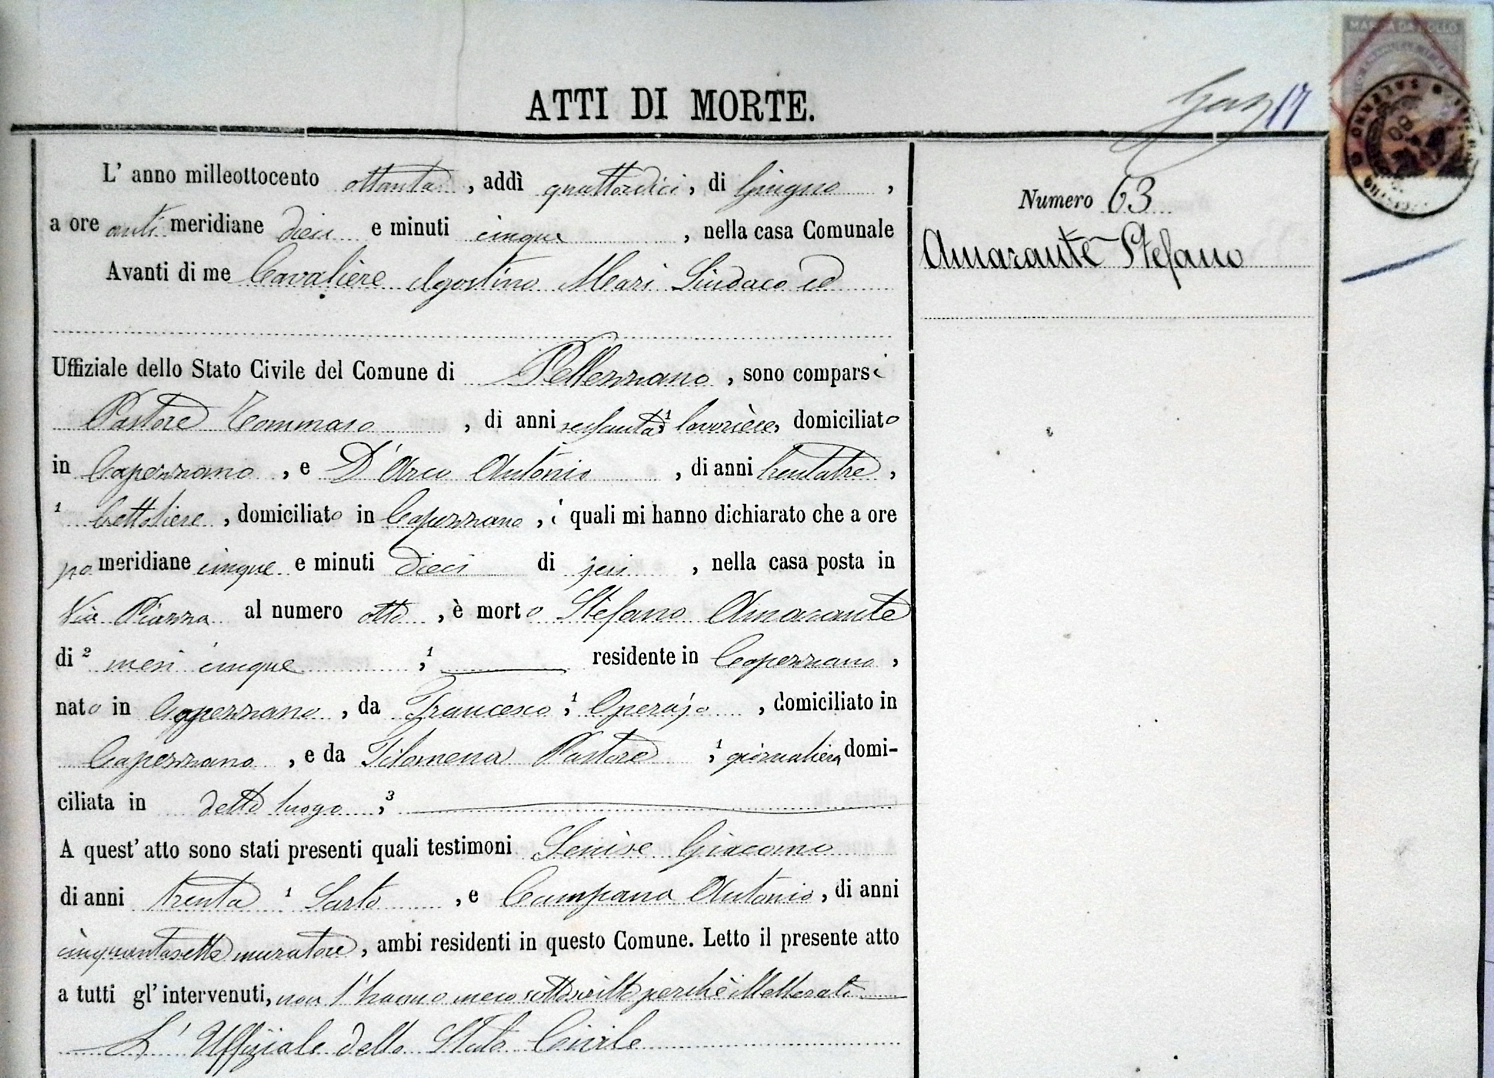 ATTI DI MORTE.
17
MARCA DA BOLLO
L' anno milleottocento ottanta, addì quattordici, di Giugno,
a ore anti meridiane dieci e minuti cinque, nella casa Comunale
Avanti di me Cavaliere Agostino Mari Sindaco ed
Uffiziale dello Stato Civile del Comune di Pellezzano, sono comparsi
Pastore Tommaso, di anni sessanta ¹ , domiciliato
in Capezzano, e D'Arco Antonio, di anni trentatre,
¹ bettoliere, domiciliato in Capezzano, i quali mi hanno dichiarato che a ore
po meridiane cinque e minuti dieci di jeri, nella casa posta in
Via Piazza al numero otto, è morto Stefano Amarante
di ² mesi cinque, ¹ residente in Capezzano,
nato in Capezzano, da Francesco, ¹ Operajo, domiciliato in
Capezzano, e da Filomena Pastore, ¹ giornaliera domi-
ciliata in detto luogo, ³
A quest' atto sono stati presenti quali testimoni Senise Giacomo
di anni trenta ¹ Sarto, e Campana Antonio, di anni
cinquantasette muratore, ambi residenti in questo Comune. Letto il presente atto
a tutti gl' intervenuti, non l'hanno meco sottoscritto perchè illetterati
L' Uffiziale dello Stato Civile
Numero 63
Amarante Stefano